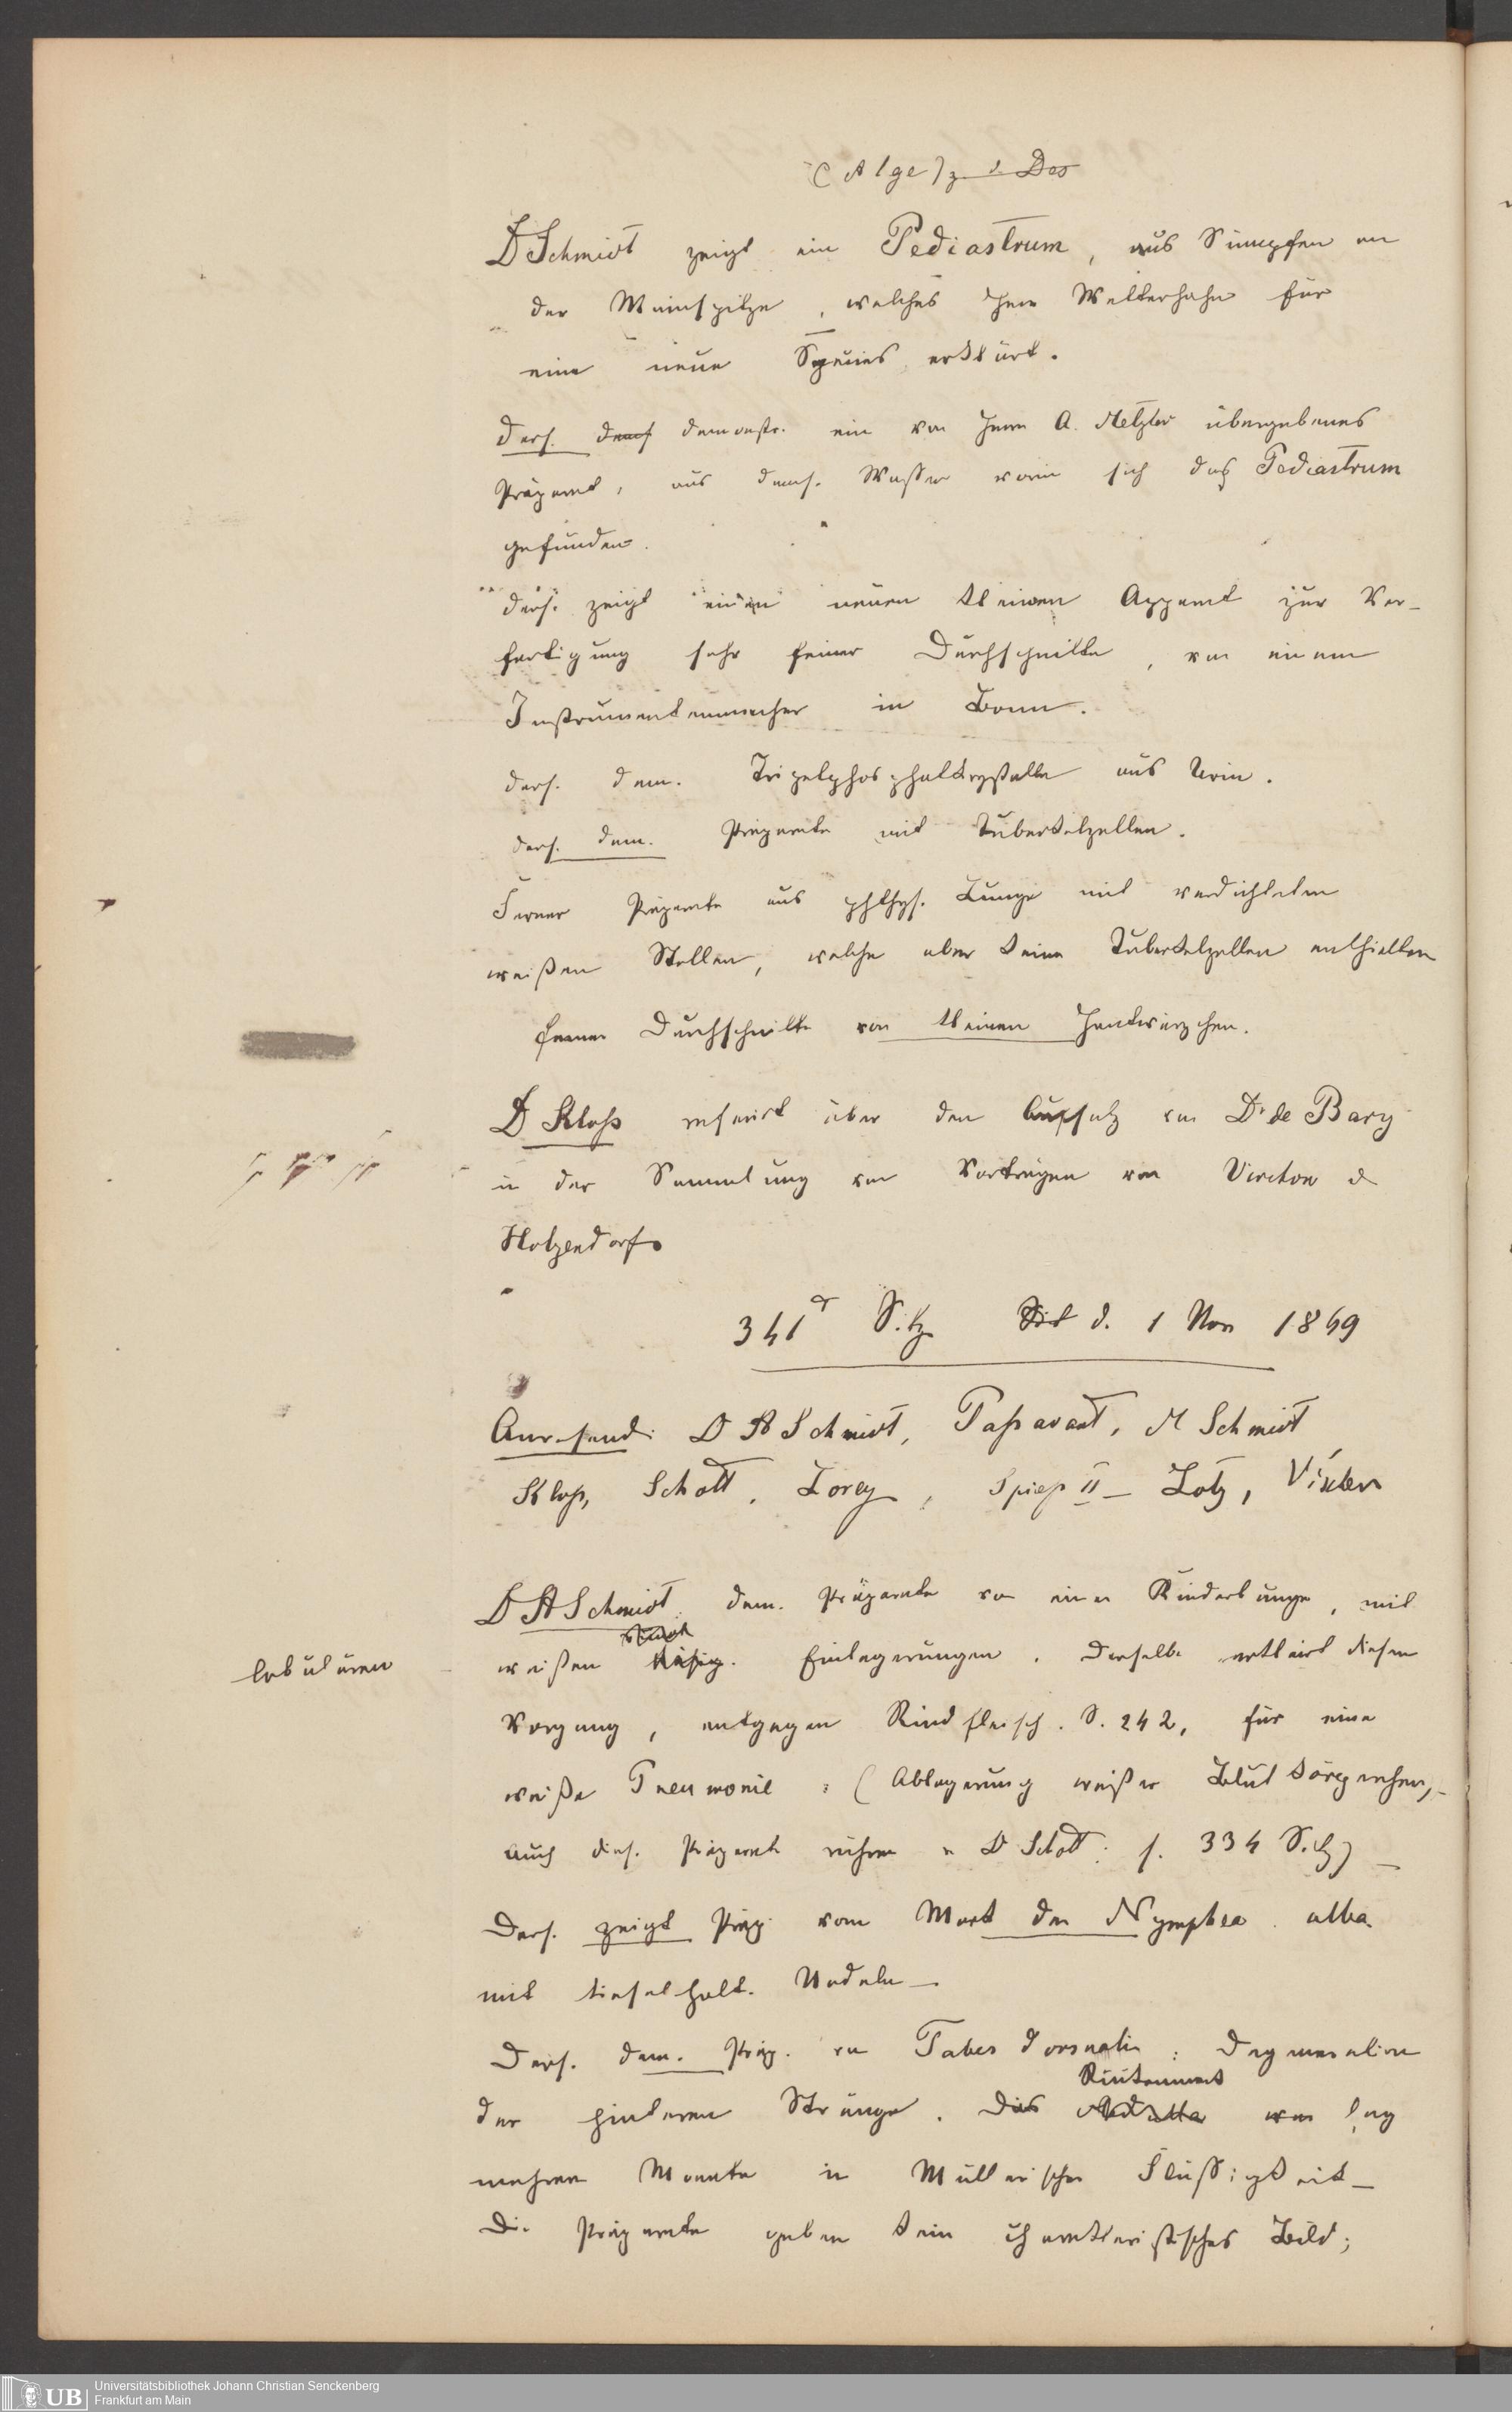 (Alge) z d Des
D Schmidt zeigt ein Pediastrum, aus Sümpfen an
der Mainspitze, welches Herr Wetterhahn für
eine neue Species erklärt.
Ders. demonstr. ein von Herrn A. Metzler übergebenes
Präparat, aus dems. Wasser worin sich das Pediastrum
gefunden.
ders. zeigt einen neuen kleinen Apparat zur Ver-
fertigung sehr feiner Durchschnitte, von einem
Instrumentenmacher in Bonn.
ders. dem. Tripelphosphatkrystalle aus Urin.
ders. dem. Präparate mit Tuberkelzellen.
Ferner Präparate aus phthys. Lunge mit verdichteten
weißen Stellen, welche aber keine Tuberkelzellen enthielten
ferner Durchschnitte von kleinen Hautwärzchen.
D Kloß referirt über den Aufsatz von Dr de Bary
in der Sammlung von Vorträgen von Virchow &
Holzendorf
341r Sitz d. 1 Nov 1869
Anwesend: D A Schmidt, Passavant, M Schmidt
Kloß, Schott, Lorey, Spieß II – Lotz,
D A Schmidt. dem. Präparate von einer Kinderlunge, mit
lobulären
weißen käsig. Einlagerungen. Derselbe erklärt diesen
Vorgang, entgegen Rindfleisch. S. 242, für eine
weiße Pneumonie: (Ablagerung weißer Blutkörperchen,-
auch dies. Präparate rühren v D Schott: s. 334 Sitz) –
Ders. zeigt Präp. vom Mark der Nymphea alba
mit kieselhalt. Nadeln –
Ders. dem. Präp. von Tabes dorsualis: Degeneration
Rückenmark
der hinteren Stränge. Das lag
mehrere Monate in Müllerischer Flüssigkeit –
Die Präparate geben kein charakteristisches Bild;
Universitätsbibliothek Johann Christian Senckenberg
Frankfurt am Main
UB